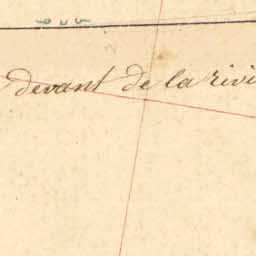 devant de la rivi